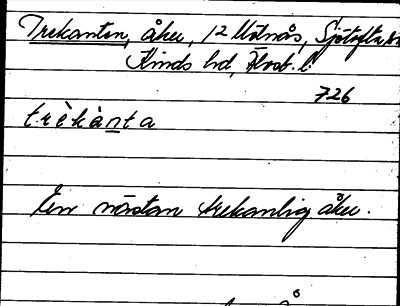 Trekanten, åker, 12 Västnås, Sjötofta sn
Kinds hd, Älvsb. l.
726
trèkànta
En nästan trekantig åker.